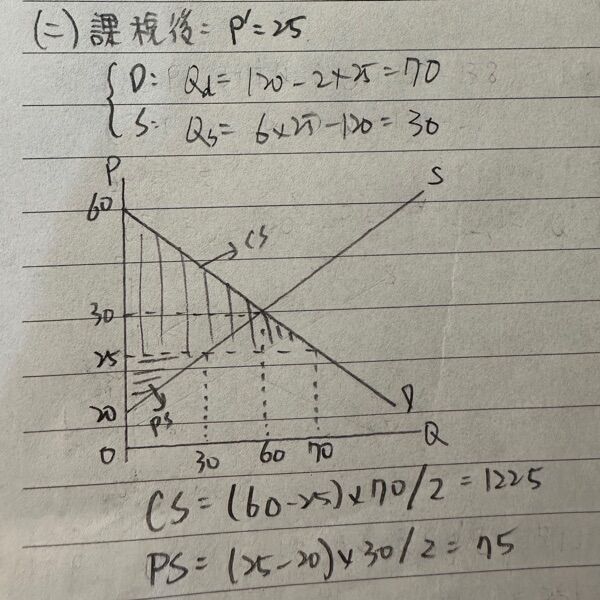 (二) 課稅後: P'=25
D: Qd= 120-2×25=70
S: Qs= 6×25-120=30
P
S
60
CS
30
25
20
PS
D
0
30
60
70
Q
CS= (60-25)×70/2=1225
PS= (25-20)×30/2=75